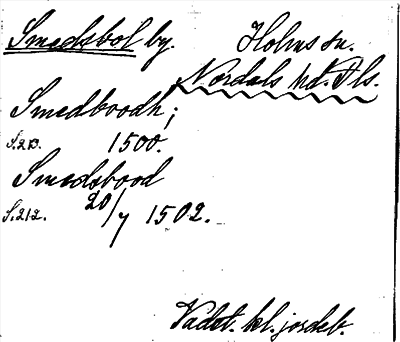 Smedsbol by. Holms sn.
Nordals hd. Dls.
Smedboodh;
S.213. 1500.
Smedsbood
S.212. 20/7 1502.
Vadst. kl. jordeb.